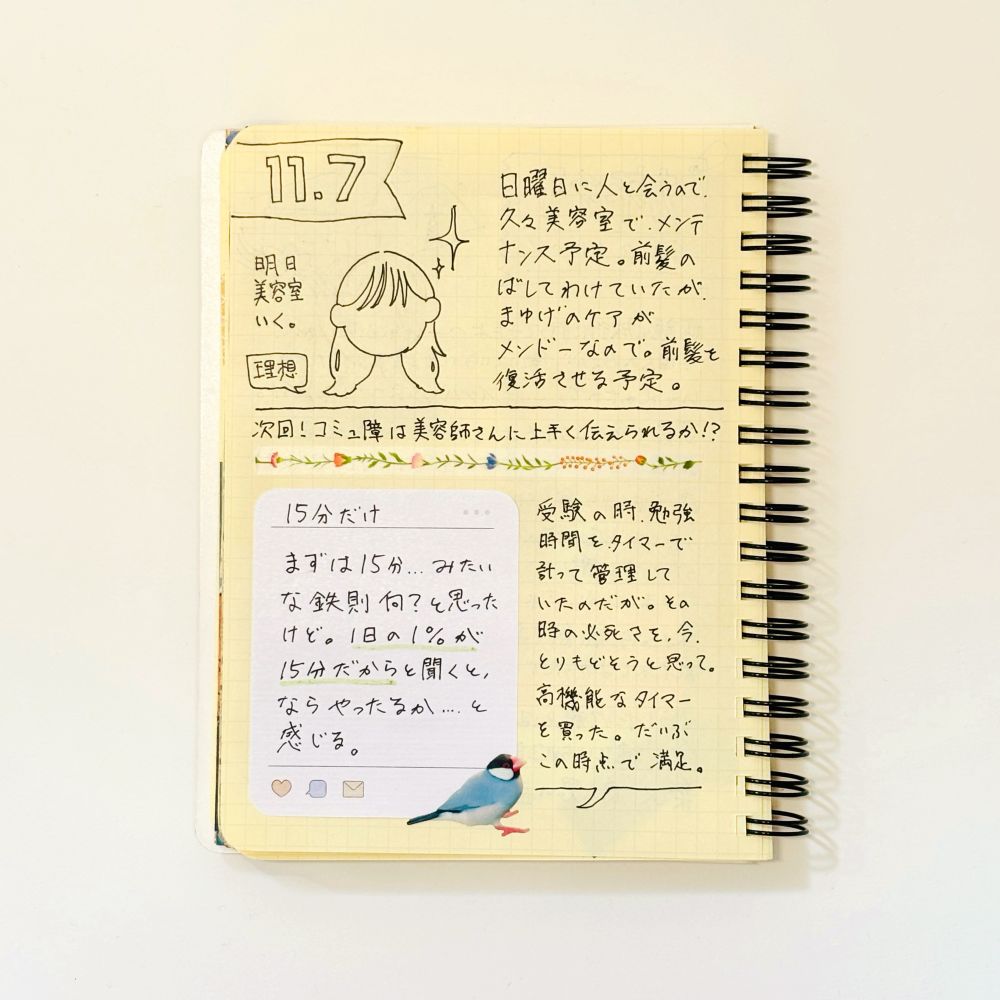 11.7
明日
美容室
いく。
理想
日曜日に人と会うので、
久々美容室で、メンテ
ナンス予定。前髪の
ばしてわけていたが、
まゆげのケアが
メンドーなので。前髪を
復活させる予定。
次回!コミュ障は美容師さんに上手く伝えられるか!?
15分だけ
まずは15分...みたい
な鉄則何?と思った
けど。1日の1%が
15分だからと聞くと、
ならやったるか....と
感じる。
受験の時、勉強
時間を、タイマーで
計って管理して
いたのだが。その
時の必死さを、今、
とりもどそうと思って。
高機能なタイマー
を買った。だいぶ
この時点で満足。